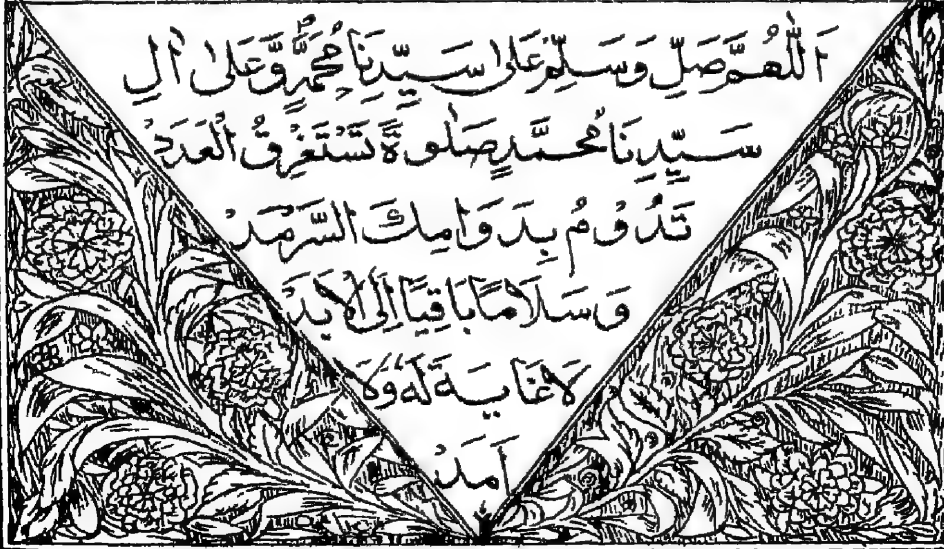 اَللّٰهُمَّ صَلِّ وَسَلِّمْ عَلٰى سَيِّدِنَا مُحَمَّدٍ وَّعَلٰى اٰلِ
سَيِّدِنَا مُحَمَّدٍ صَلٰوةً تَسْتَغْرِقُ الْعَدَدْ
تَدُوْمُ بِدَوَامِكَ السَّرْمَدْ
وَسَلَامًا بَاقِيًا اِلَى الْاَبَدْ
لَا غَايَةَ لَهٗ وَلَا
اَمَدْ